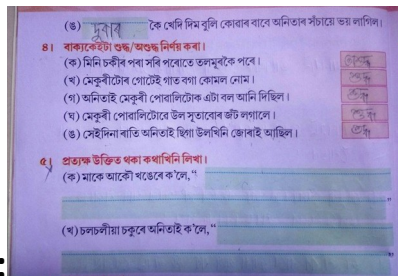 (ঙ) দুবাৰ কৈ খেদি দিম বুলি কোৱাৰ বাবে অনিতাৰ সঁচায়ে ভয় লাগিল।
৪। বাক্যকেইটা শুদ্ধ/অশুদ্ধ নিৰ্ণয় কৰা।
(ক) মিনি চকীৰ পৰা সৰি পৰোতে তলমূৰকৈ পৰে। অশুদ্ধ
(খ) মেকুৰীটোৰ গোটেই গাত বগা কোমল নোম। শুদ্ধ
(গ) অনিতাই মেকুৰী পোৱালিটোক এটা বল আনি দিছিল। শুদ্ধ
(ঘ) মেকুৰী পোৱালিটোৱে উল সূতাবোৰ জঁট লগালে। শুদ্ধ
(ঙ) সেইদিনা ৰাতি অনিতাই ছিগা উলখিনি জোৰাই আছিল। শুদ্ধ
৫। প্ৰত্যক্ষ উক্তিত থকা কথাখিনি লিখা।
(ক) মাকে আকৌ খঙেৰে ক'লে, "
"
(খ) চলচলীয়া চকুৰে অনিতাই ক'লে, "
"